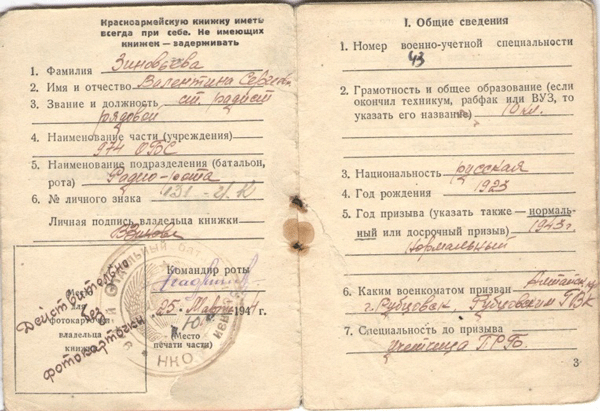 Красноармейскую книжку иметь
всегда при себе. Не имеющих
книжек — задерживать
1. Фамилия Зиновьева
2. Имя и отчество Валентина
3. Звание и должность ст. радист
рядовой
4. Наименование части (учреждения)
974 ОБС
5. Наименование подразделения (батальон,
рота) Радио-рота
6. № личного знака
Личная подпись владельца книжки
Командир роты
25 Марта 1944 г.
(Место
печати части)
Место
для
фотокарточки
владельца
книжки
Действительно
без
фотокарточки
НКО
I. Общие сведения
1. Номер военно-учетной специальности
43
2. Грамотность и общее образование (если
окончил техникум, рабфак или ВУЗ, то
указать его название) 10 кл.
3. Национальность русская
4. Год рождения 1923
5. Год призыва (указать также — нормаль-
ный или досрочный призыв) 1943 г.
Нормальный
6. Каким военкоматом призван
г. Рубцовск Рубцовским ГВК
7. Специальность до призыва
учетчица
3